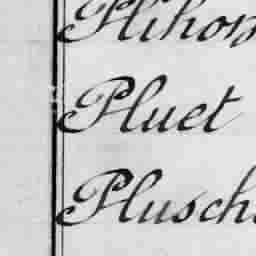 Plihon
Pluet
Plusch